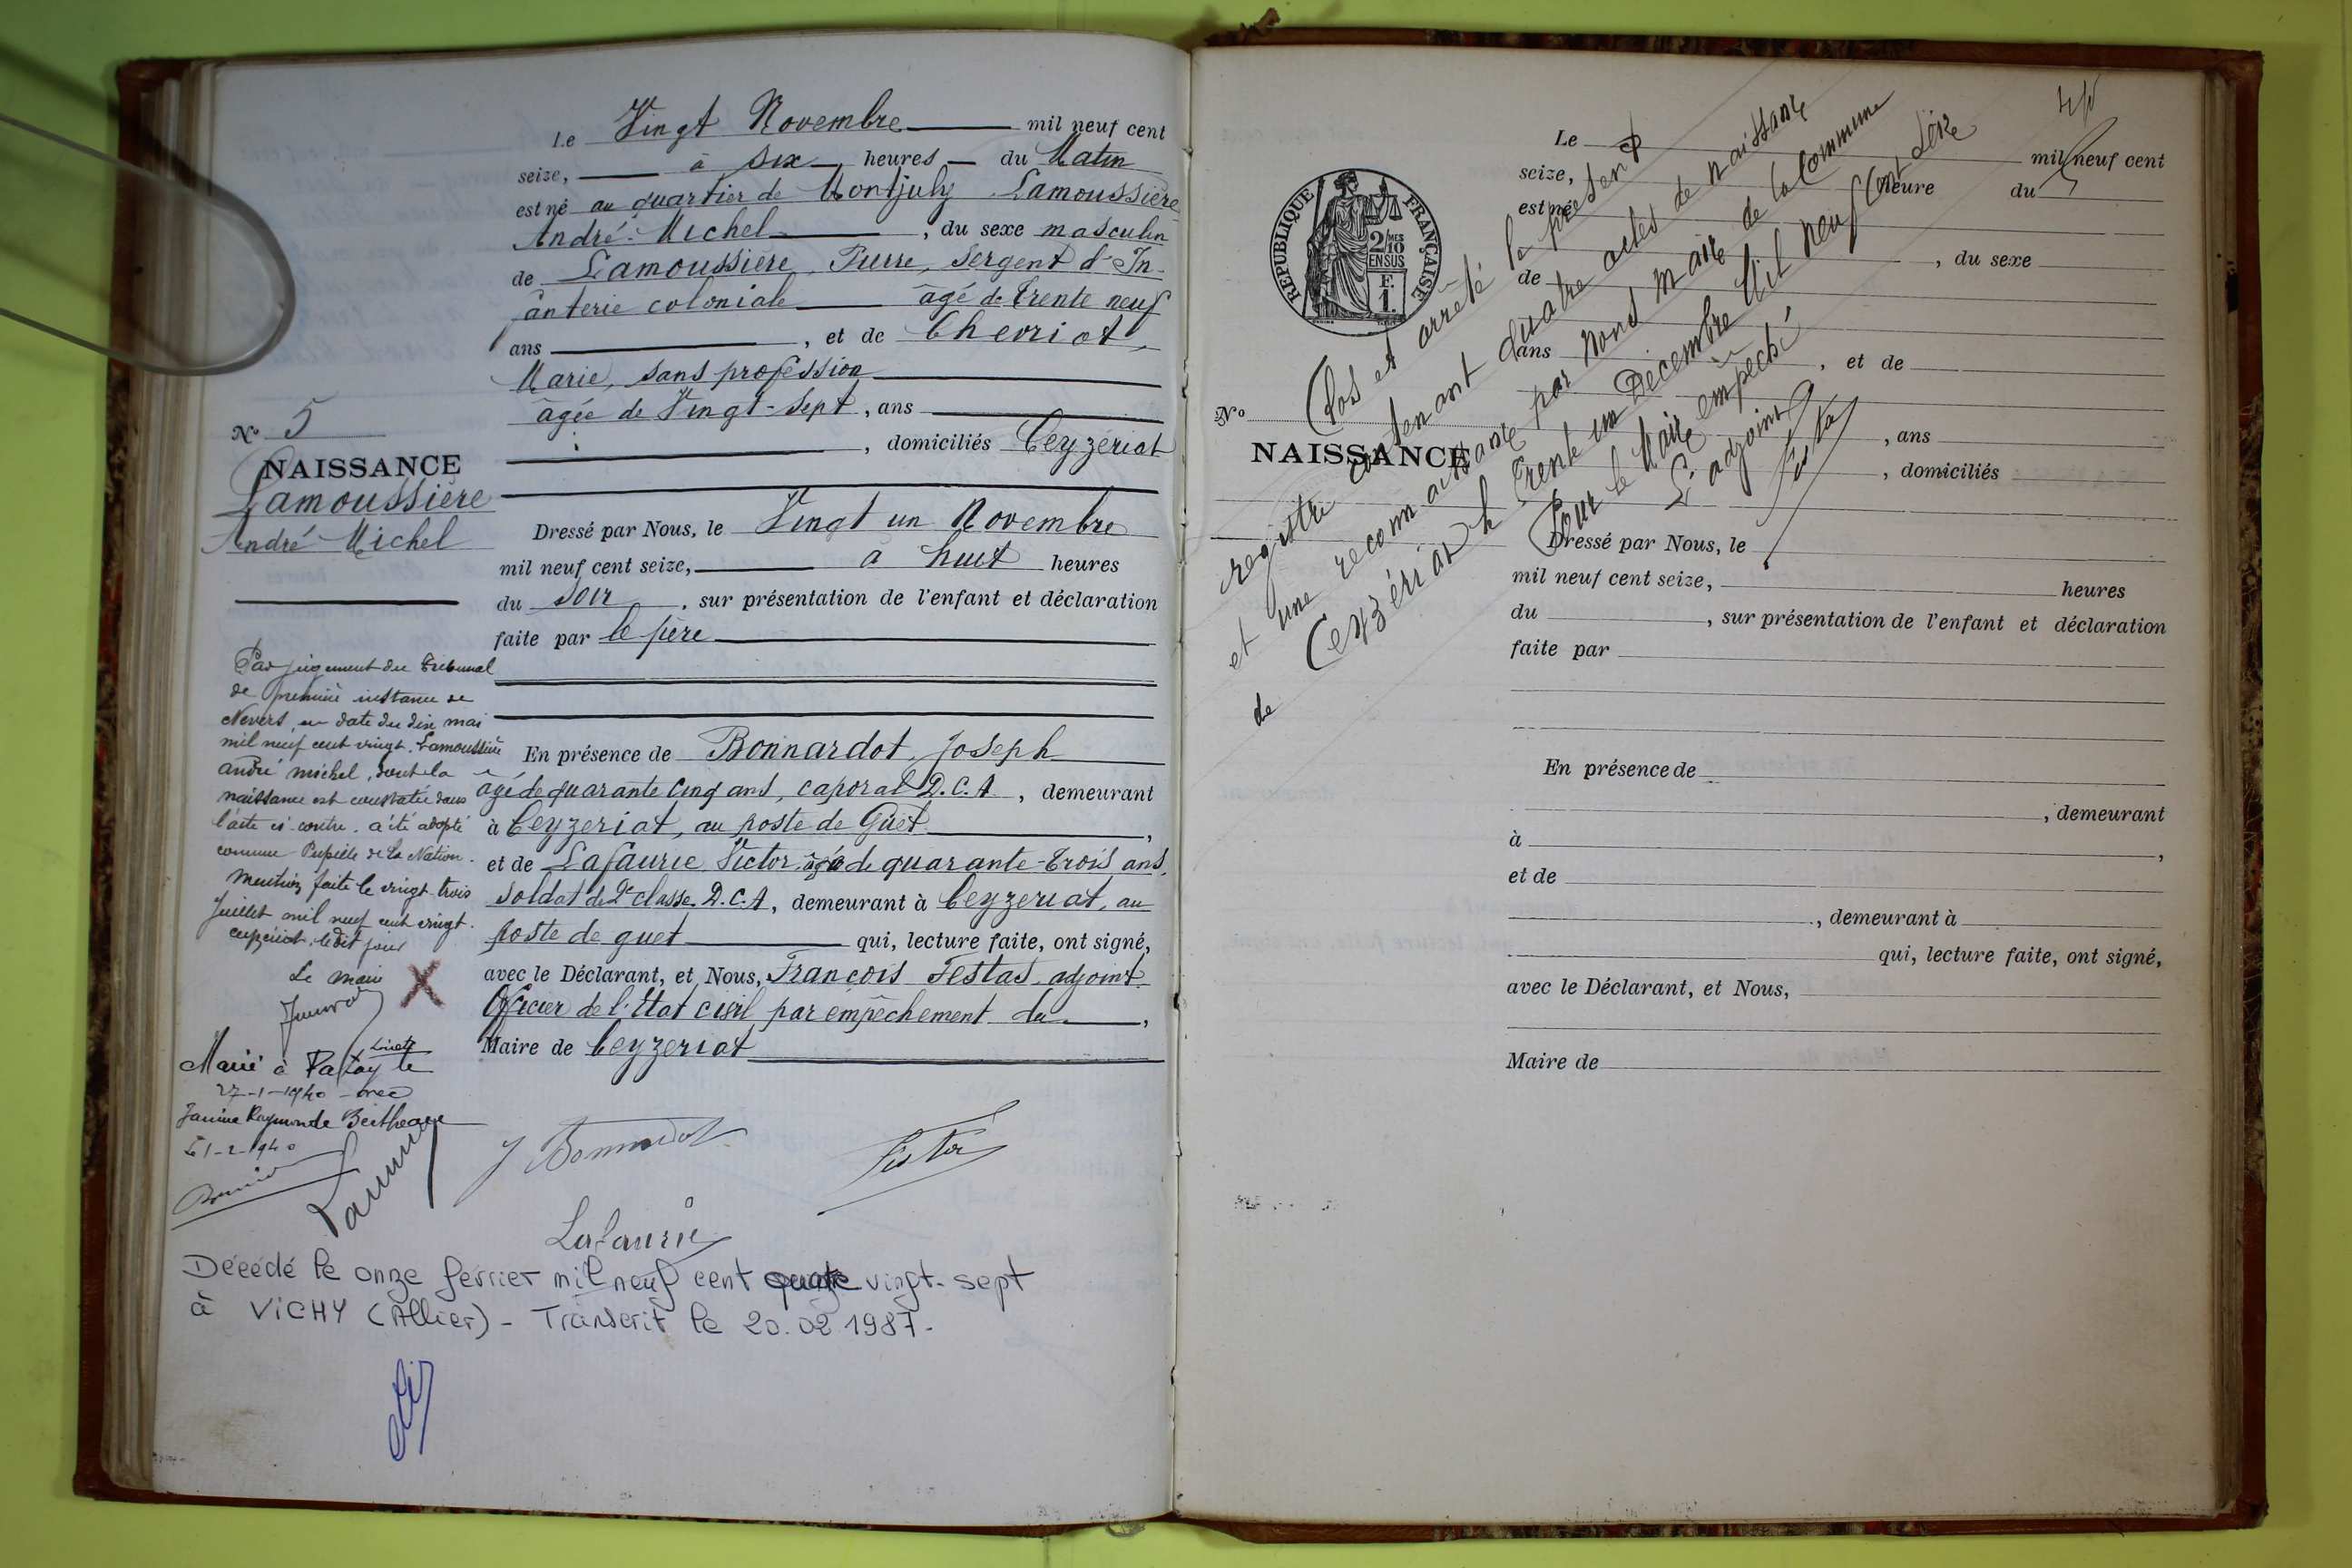 Le Vingt Novembre mil neuf cent
seize, à six heures du Matin
est né au quartier de Montjuly Lamoussière
André-Michel, du sexe masculin
de Lamoussière, Pierre, Sergent d'In-
fanterie coloniale âgé de trente neuf
ans, et de Cherriot,
Marie, sans profession
âgée de Vingt-Sept, ans
, domiciliés Ceyzériat
No 5
NAISSANCE
Lamoussière
André Michel
Dressé par Nous, le Vingt un Novembre
mil neuf cent seize, à huit heures
du soir, sur présentation de l'enfant et déclaration
faite par le père
En présence de Bonnardot, Joseph
âgé de quarante cinq ans, caporal D.C.A, demeurant
à Ceyzeriat, au poste de Guet,
et de Lafaurie Victor, âgé de quarante-trois ans,
soldat de 2e classe D.C.A, demeurant à Ceyzeriat, au
poste de guet qui, lecture faite, ont signé,
avec le Déclarant, et Nous, François Festas, adjoint
Officier de l'Etat civil par empêchement du,
Maire de Ceyzeriat
Par jugement du Tribunal
de première instance de
Nevers en date du dix mai
mil neuf cent vingt. Lamoussière
andré michel, dont la
naissance est constatée dans
l'acte ci-contre. a été adopté
comme Pupille de la Nation.
Mention faite le vingt trois
Juillet mil neuf cent vingt.
ceyzériat, ledit jour
Le maire
X
Marié à Patay Loiret le
27-1-1940 avec
Janine Raymonde Bertheau
Le 1-2-1940
J Bonnardot
Festas
Lafaurie
Décédé le onze février mil neuf cent quatre vingt-sept
à VICHY (Allier) - Transcrit le 20.02 1987-
Le mil neuf cent
seize, heure du
est né
, du sexe
de
ans , et de
, ans
, domiciliés
REPUBLIQUE FRANÇAISE
2/10MES
EN SUS
F.
1.
No
NAISSANCE
Clos et arrêté le présent
registre contenant quatre actes de naissance
et une reconnaissance par Nous maire de la Commune
de Ceyzériat le trente un Décembre Mil neuf Cent Seize
Pour le Maire empêché
L'adjoint
Festas
Dressé par Nous, le
mil neuf cent seize, heures
du , sur présentation de l'enfant et déclaration
faite par
En présence de
, demeurant
à ,
et de
, demeurant à
qui, lecture faite, ont signé,
avec le Déclarant, et Nous,
Maire de